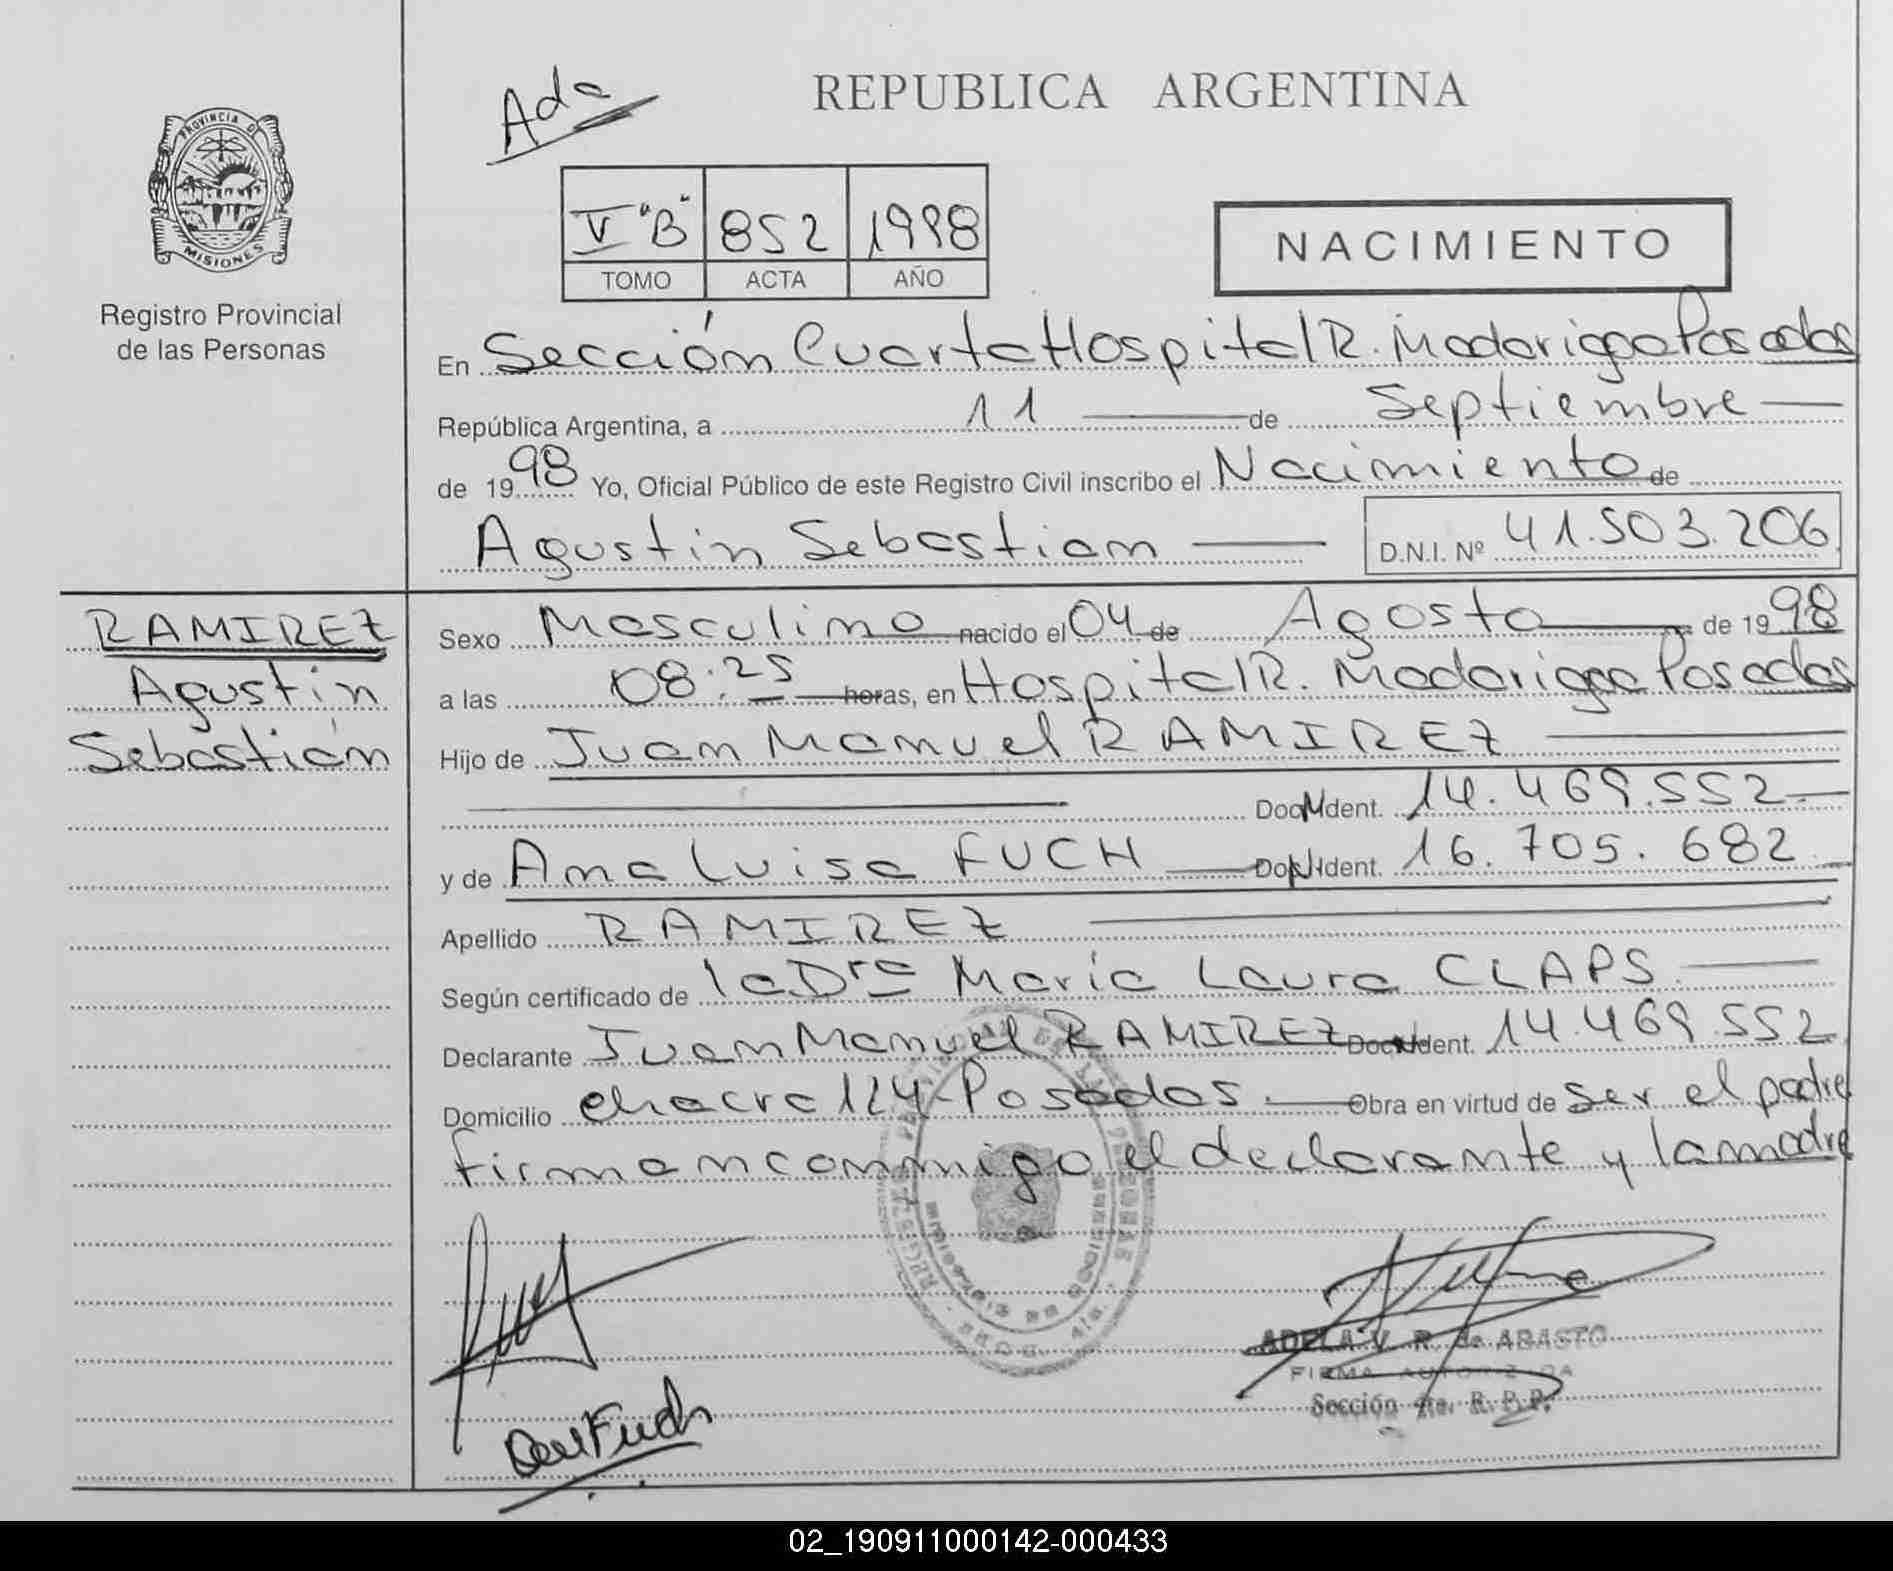 Ada
REPUBLICA ARGENTINA
PROVINCIA DE
MISIONES
Registro Provincial
de las Personas
V "B" 852 1998
TOMO ACTA AÑO
NACIMIENTO
En Sección Cuarta Hospital R. Madariaga Posadas
República Argentina, a 11 de Septiembre
de 1998 Yo, Oficial Público de este Registro Civil inscribo el Nacimiento de
Agustin Sebastian D.N.I. Nº 41.503.206
RAMIREZ
Agustin
Sebastián
Sexo Masculino nacido el 04 de Agosto de 1998
a las 08:25 horas, en Hospital R. Madariaga Posadas
Hijo de Juan Manuel RAMIREZ
Doc. Ident. 14.469.552
y de Ana Luisa FUCH Doc. Ident. 16.705.682
Apellido RAMIREZ
Según certificado de la Dra María Laura CLAPS
Declarante Juan Manuel RAMIREZ Doc. Ident. 14.469.552
Domicilio chacra 124-Posadas. Obra en virtud de ser el padre
firman conmigo el declarante y la madre
Fuch
ADELA V. R. de ABASTO
FIRMA AUTORIZADA
Sección 4ta. R. P. P.
02_190911000142-000433